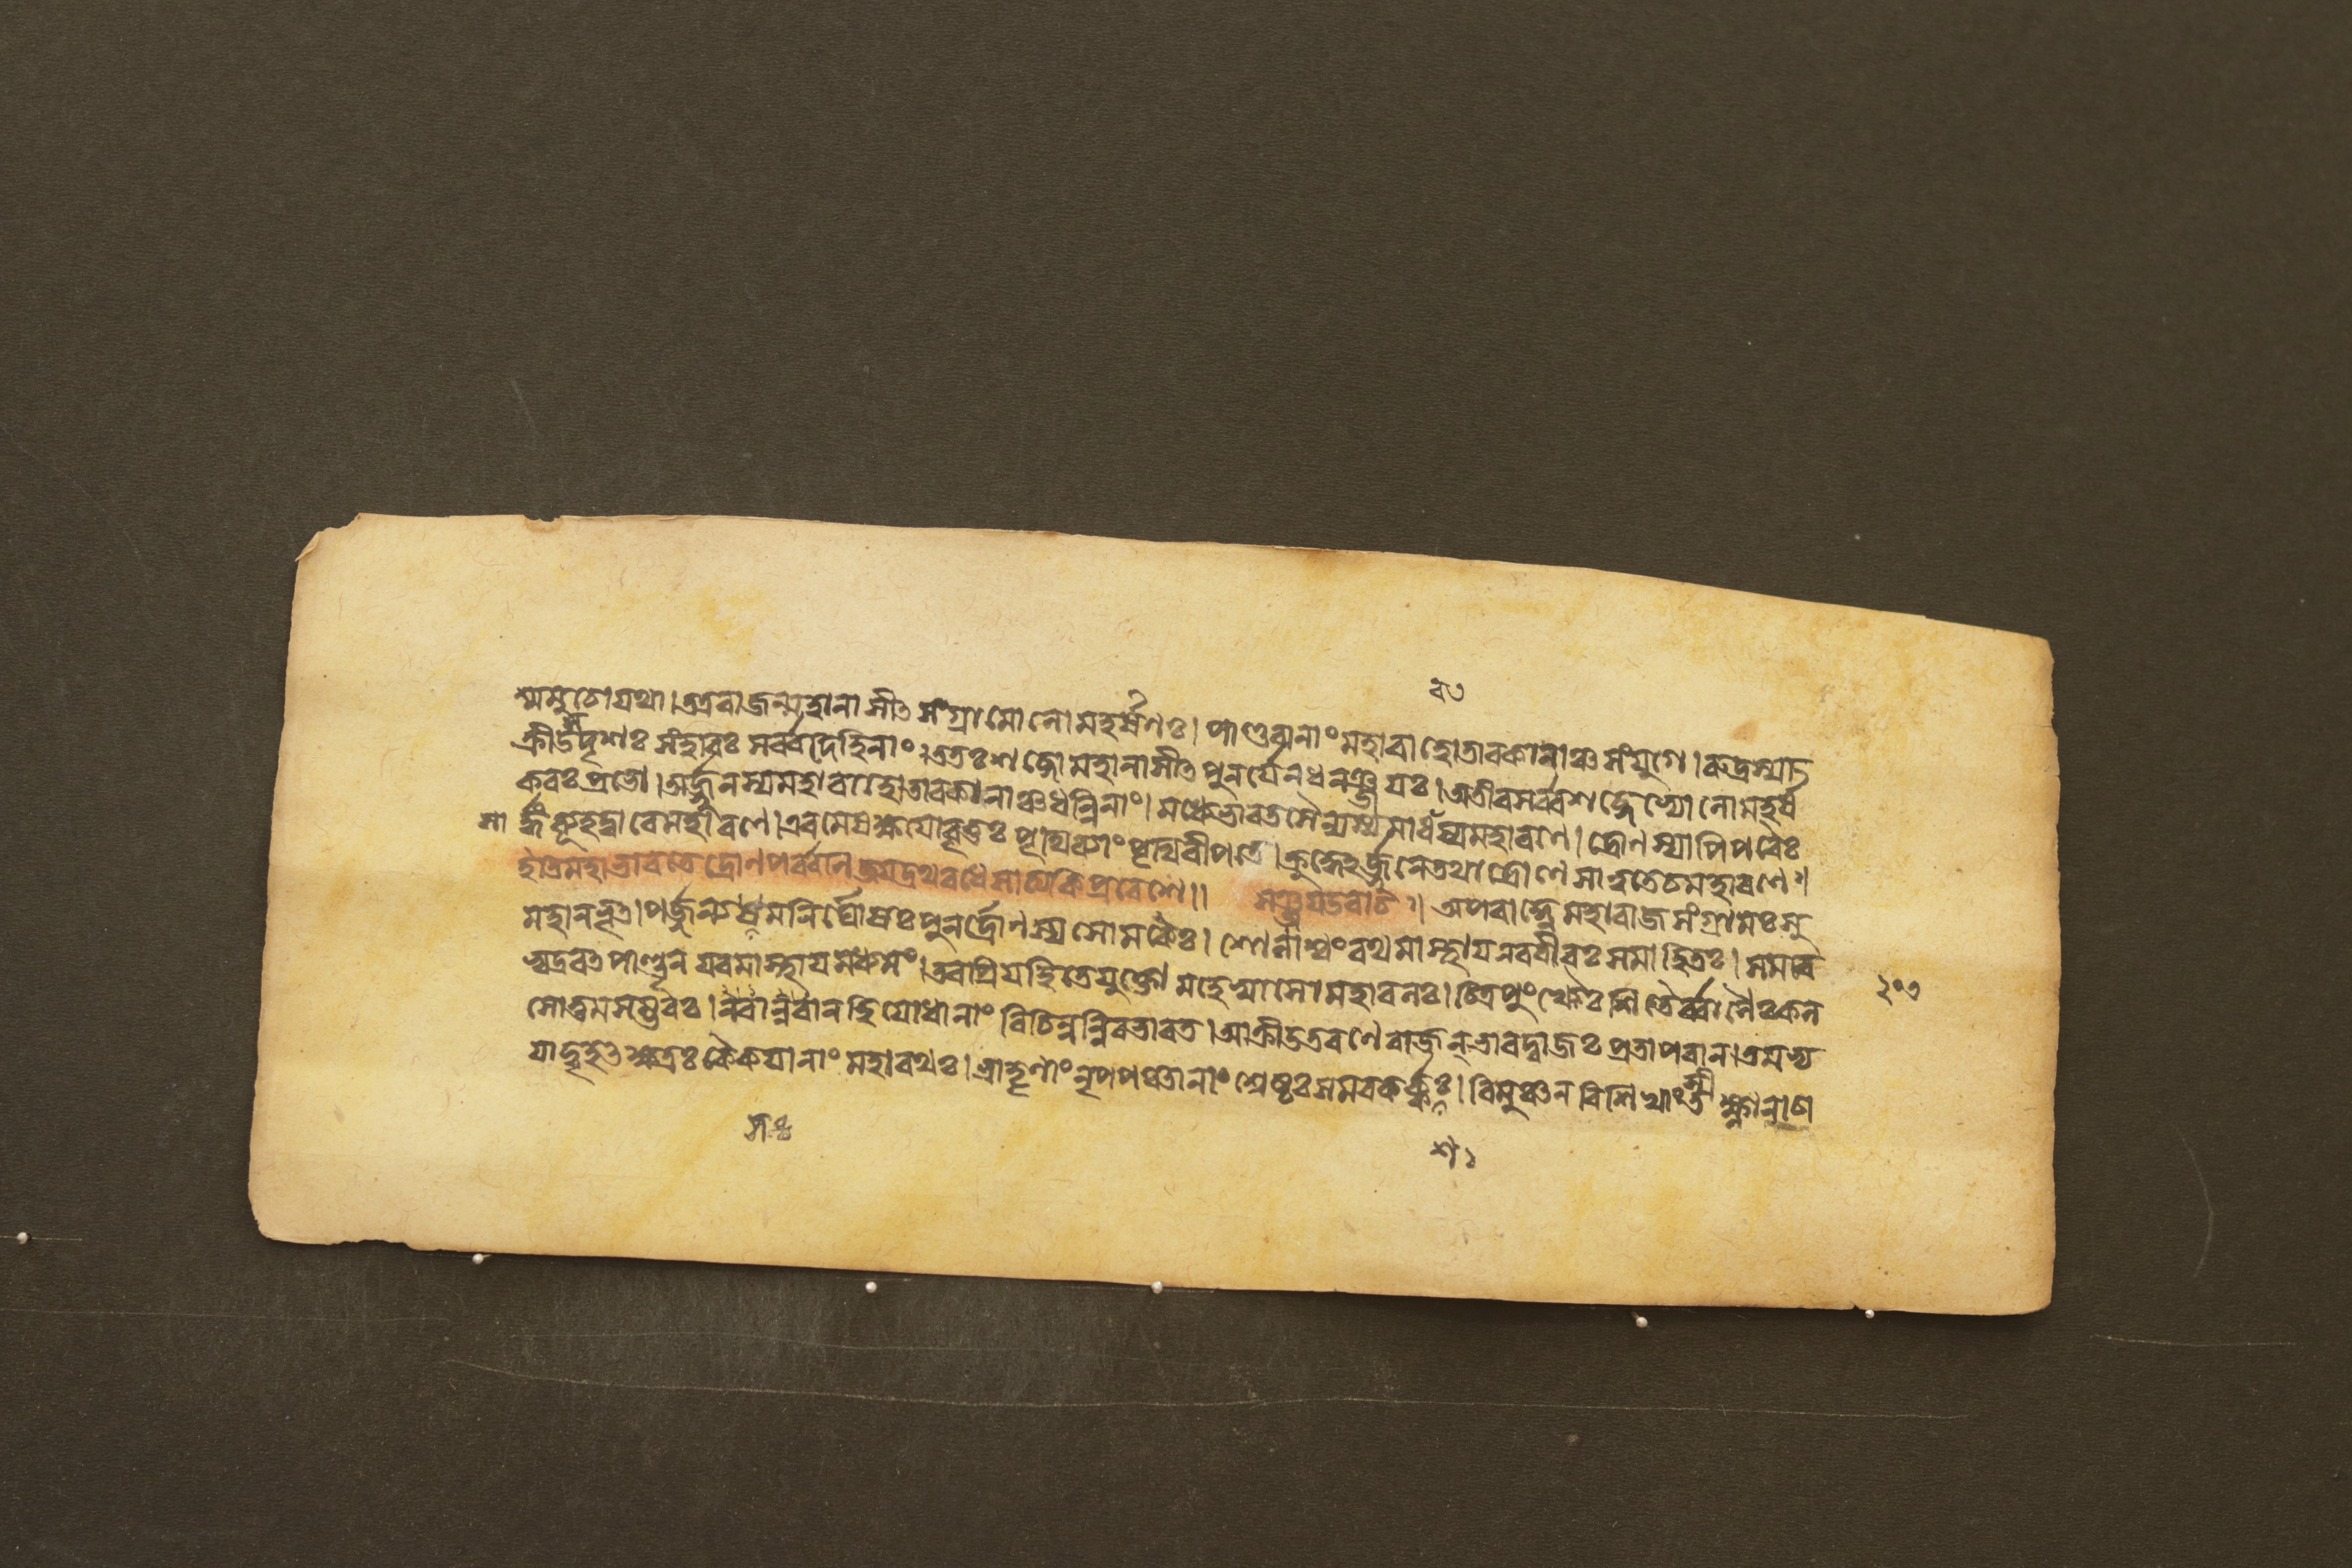 শ্মসুতোযথা।তত্ররাজন্মহানাসীৎ সংগ্রামোলোমহর্ষণঃ।পাণ্ডবানাং মহাবাহোতাবকানাঞ্চসংযুগে।রুদ্রস্যা
ক্রীডসদৃশঃ সংহারঃ সর্ব্বদেহিনাং।ততঃশব্দোমহানাসীৎ পুনর্যেনধনঞ্জয়ঃ।অতীবসর্ব্বশব্দেভ্যোলোমহর্ষ
করঃপ্রভো।অর্জ্জুনস্যমহাবাহোতাবকানাঞ্চধন্বিনাং।মধ্যেভারতসৈন্যস্যমাধবস্যমহারণে।দ্রোণস্যাপিপরৈঃ
সার্দ্ধংব্যূহদ্বারেমহারণে।এবমেষক্ষয়োবৃত্তঃ পৃথিব্যাং পৃথিবীপতে।ক্রুদ্ধেঽর্জ্জুনেতথাদ্রোণেসাত্বতেচমহারণে॥
মহাভারতেদ্রোণপর্ব্বণি জয়দ্রথবধেসাত্যকিপ্রবেশে॥ সঞ্জয়উবাচ॥ অপরাহ্ণেমহারাজসংগ্রামঃসু
মহানভূৎ।পর্জ্জন্যসমনির্ঘোষঃপুনর্দ্রোণস্যসোমকৈঃ।শোণাশ্বংরথমাস্থায়নরবীরঃসমাহিতঃ।সমরে
ভ্যদ্রবৎপাণ্ডূন্ যবমাস্থায়মধ্যমং।তবপ্রিয়হিতেযুক্তোমহেষ্বাসোমহাবলঃ।চিত্রপুংখৈঃশিতৈর্ব্বাণৈঃকল
সোত্তমসম্ভবঃ।বরান্বরান্ হিযোধানাং বিচিন্বন্নিবভারত।আক্রীডতরণেরাজন্ভারদ্বাজঃপ্রতাপবান্।তমভ্য
যাদ্বৃহৎক্ষত্রঃকৈকয়ানাং মহারথঃ।ভ্রাতৄণাং নৃপপঞ্চানাং শ্রেষ্ঠঃসমরকর্কশঃ।বিমুঞ্চন্ বিশিখাংস্তীক্ষ্ণানাচা